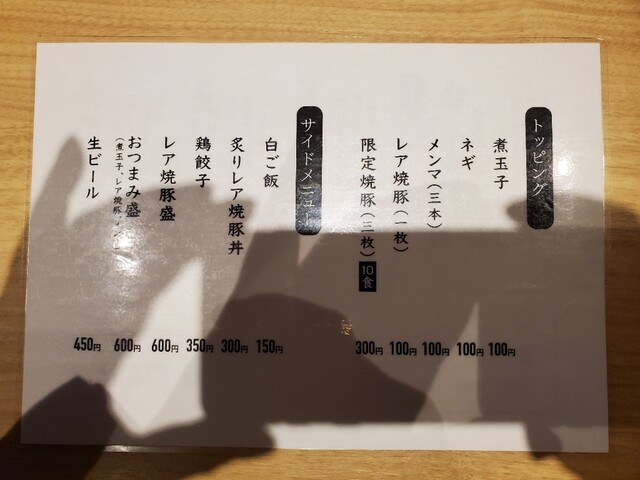 トッピング
煮玉子 100円
ネギ 100円
メンマ（三本） 100円
レア焼豚（一枚） 100円
限定焼豚（三枚） 10食 300円
サイドメニュー
白ご飯 150円
炙りレア焼豚丼 300円
鶏餃子 350円
レア焼豚盛 600円
おつまみ盛 600円
（煮玉子、レア焼豚、メンマ）
生ビール 450円